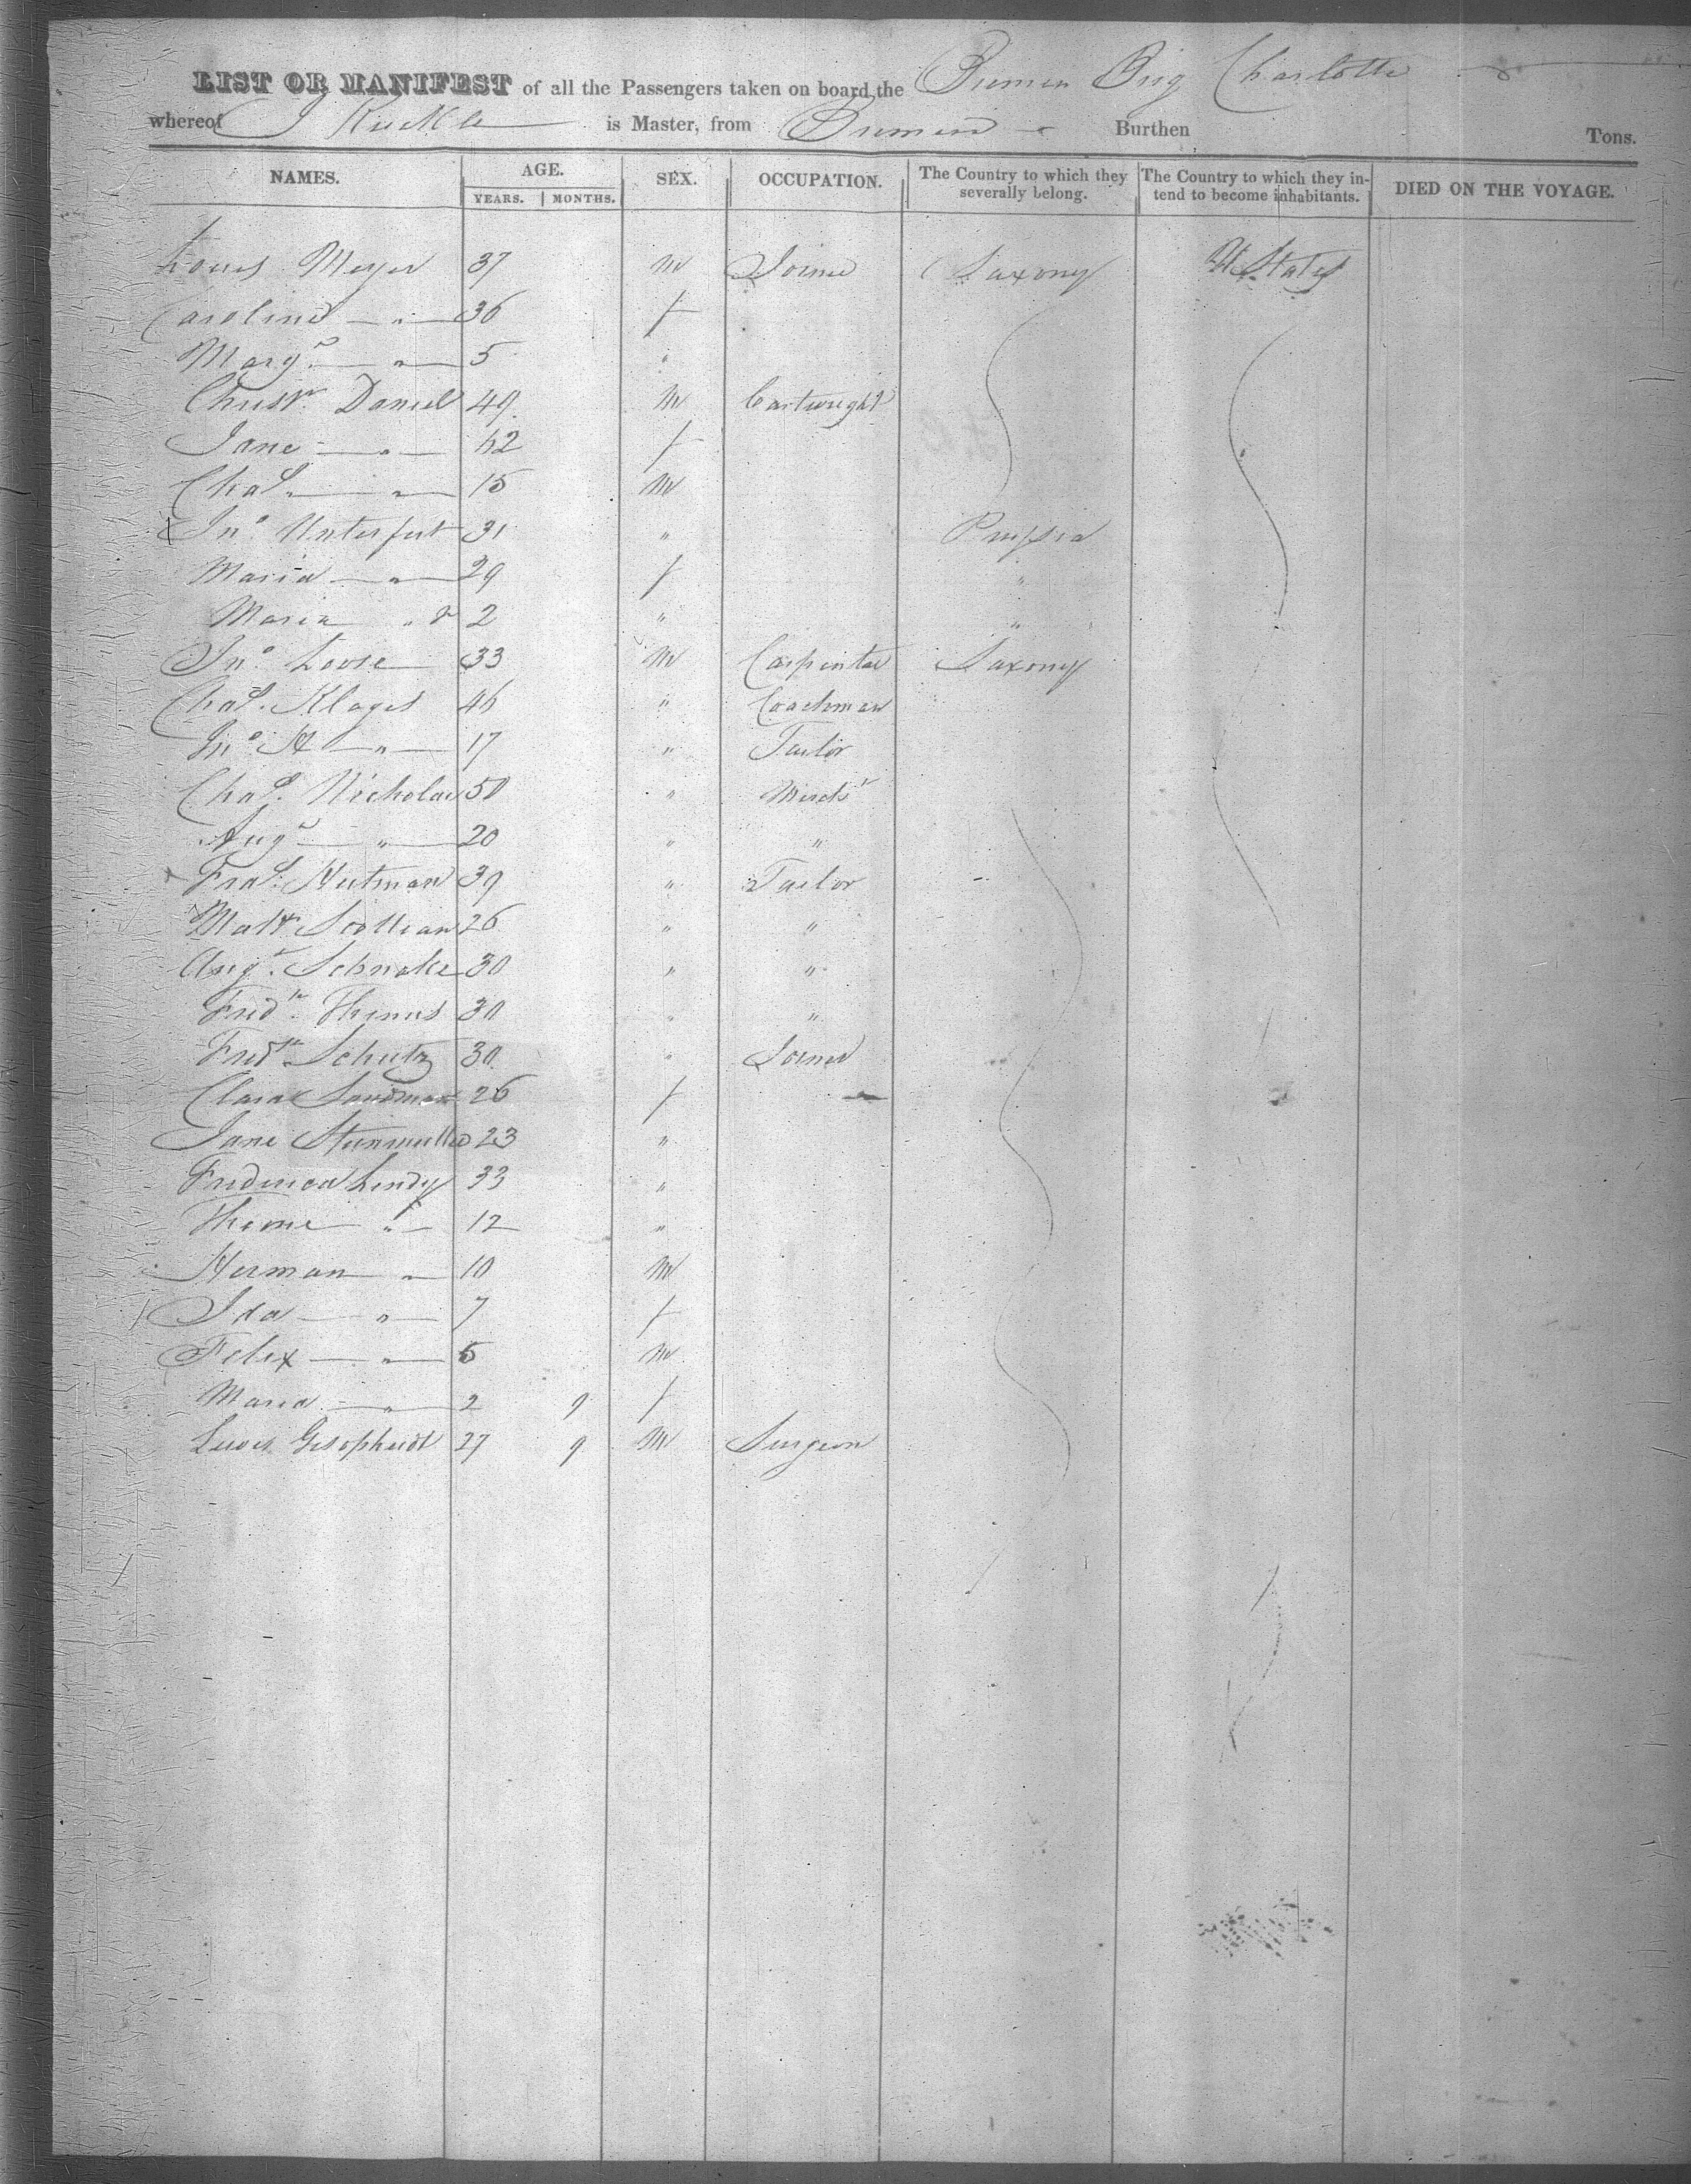 LIST OR MANIFEST of all the Passengers taken on board the Bremen Brig Charlotte
whereof J is Master, from Bremen Burthen Tons.
NAMES. AGE. SEX. OCCUPATION. The Country to which they severally belong. The Country to which they intend to become inhabitants. DIED ON THE VOYAGE.
YEARS. MONTHS.
Louis Meyer 37 M Joiner Saxony U States
Caroline — " — 36 f
Marg.a — " — 5 "
Christn. Daniel 49 M Cartwright
Jane — " — 42 f
Chas. — " — 15 M
Jno. 31 " Prussia
Maria — " — 29 f "
Maria " 2 " "
Jno. Loose 33 M Carpenter Saxony
Chas. Klages 46 " Coachman
Jno. H — " — 17 " Tailor
Chas. Nicholai 50 " Mercht
Augt — " — 20 " "
Fras. Hutman 39 " Tailor
26 " "
Augt. Schnake 30 " "
Fredk. Thenus 30 " "
Fredk. Schutz 30 " Joiner
Clara Sandman 26 f
Jane Stunmuller 23 "
Frederica Lindy 33 "
— " — 12 "
Herman — " — 10 M
Ida — " — 7 f
Felix — " — 5 M
Maria — " — 2 9 f
Lewis 27 9 M Surgeon